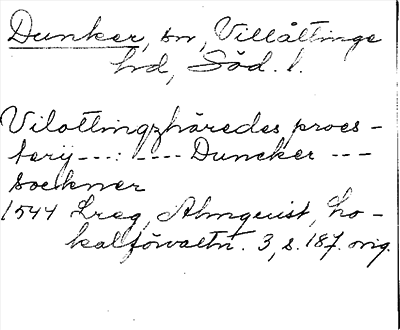 Dunker, sn, Villåttinge
hd, Söd. l.
Vilottingzhäredes proes-
terij ---: ---- Duncker ---
Sockner
1544 Lreg, Almquist, Lo-
kalförvaltn. 3, s. 187. orig.